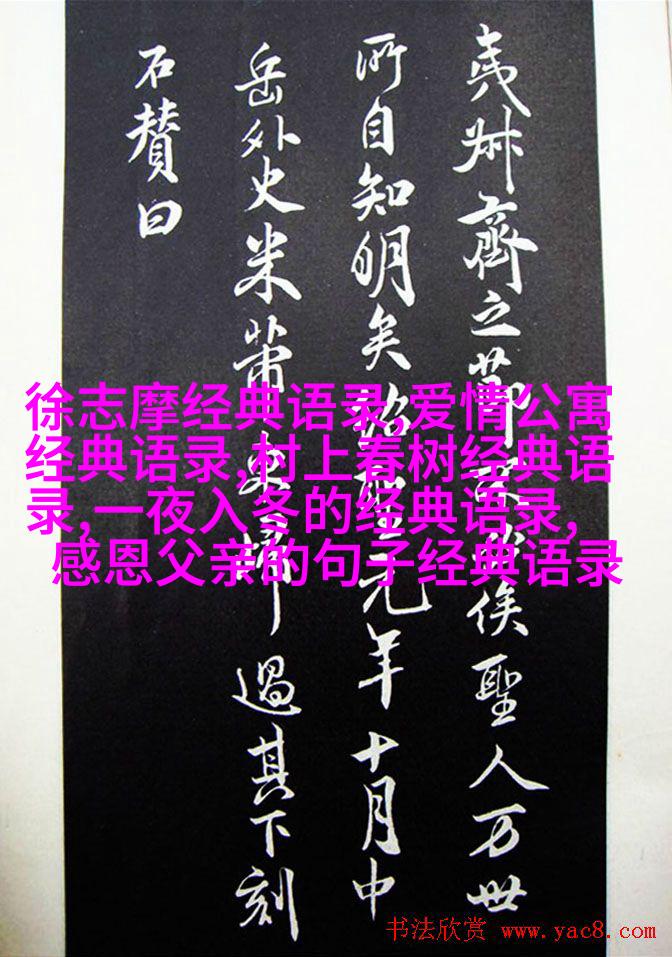 夷叔齊之節俟聖人万世
所自知明矣紹聖元年十月中
岳外史米芾東歸過其下刻
石賛曰
徐志摩经典语录,爱情公寓
经典语录,村上春树经典语
录,一夜入冬的经典语录,
感恩父亲的句子经典语录
书法欣赏 www.yac8.com